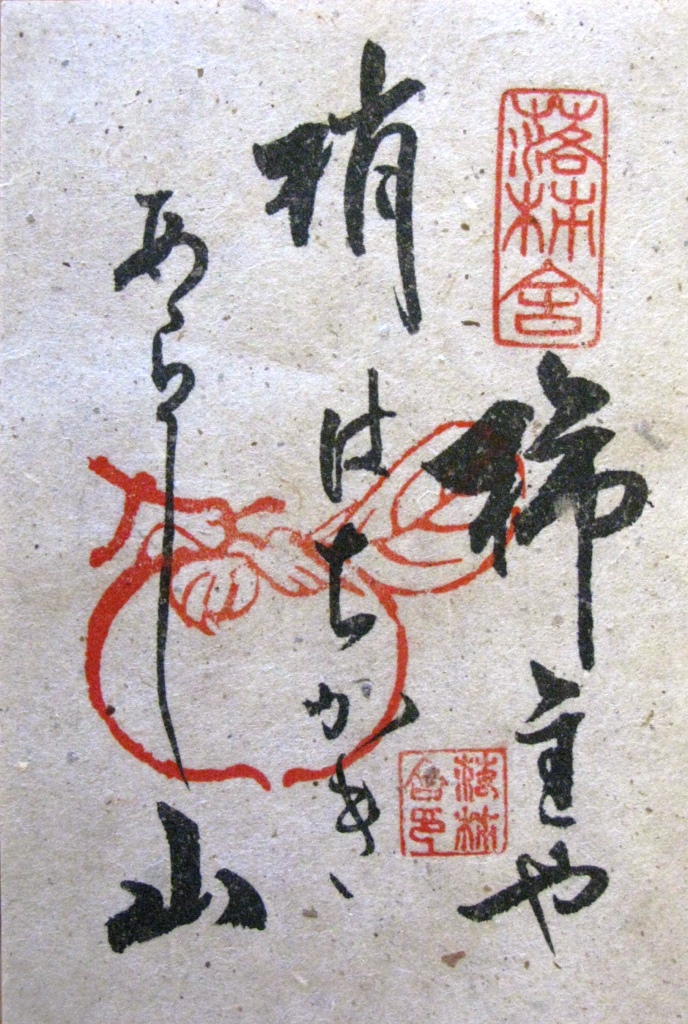 落柿舎
柿主や
梢はちかき
あらし山
落柿
舎印